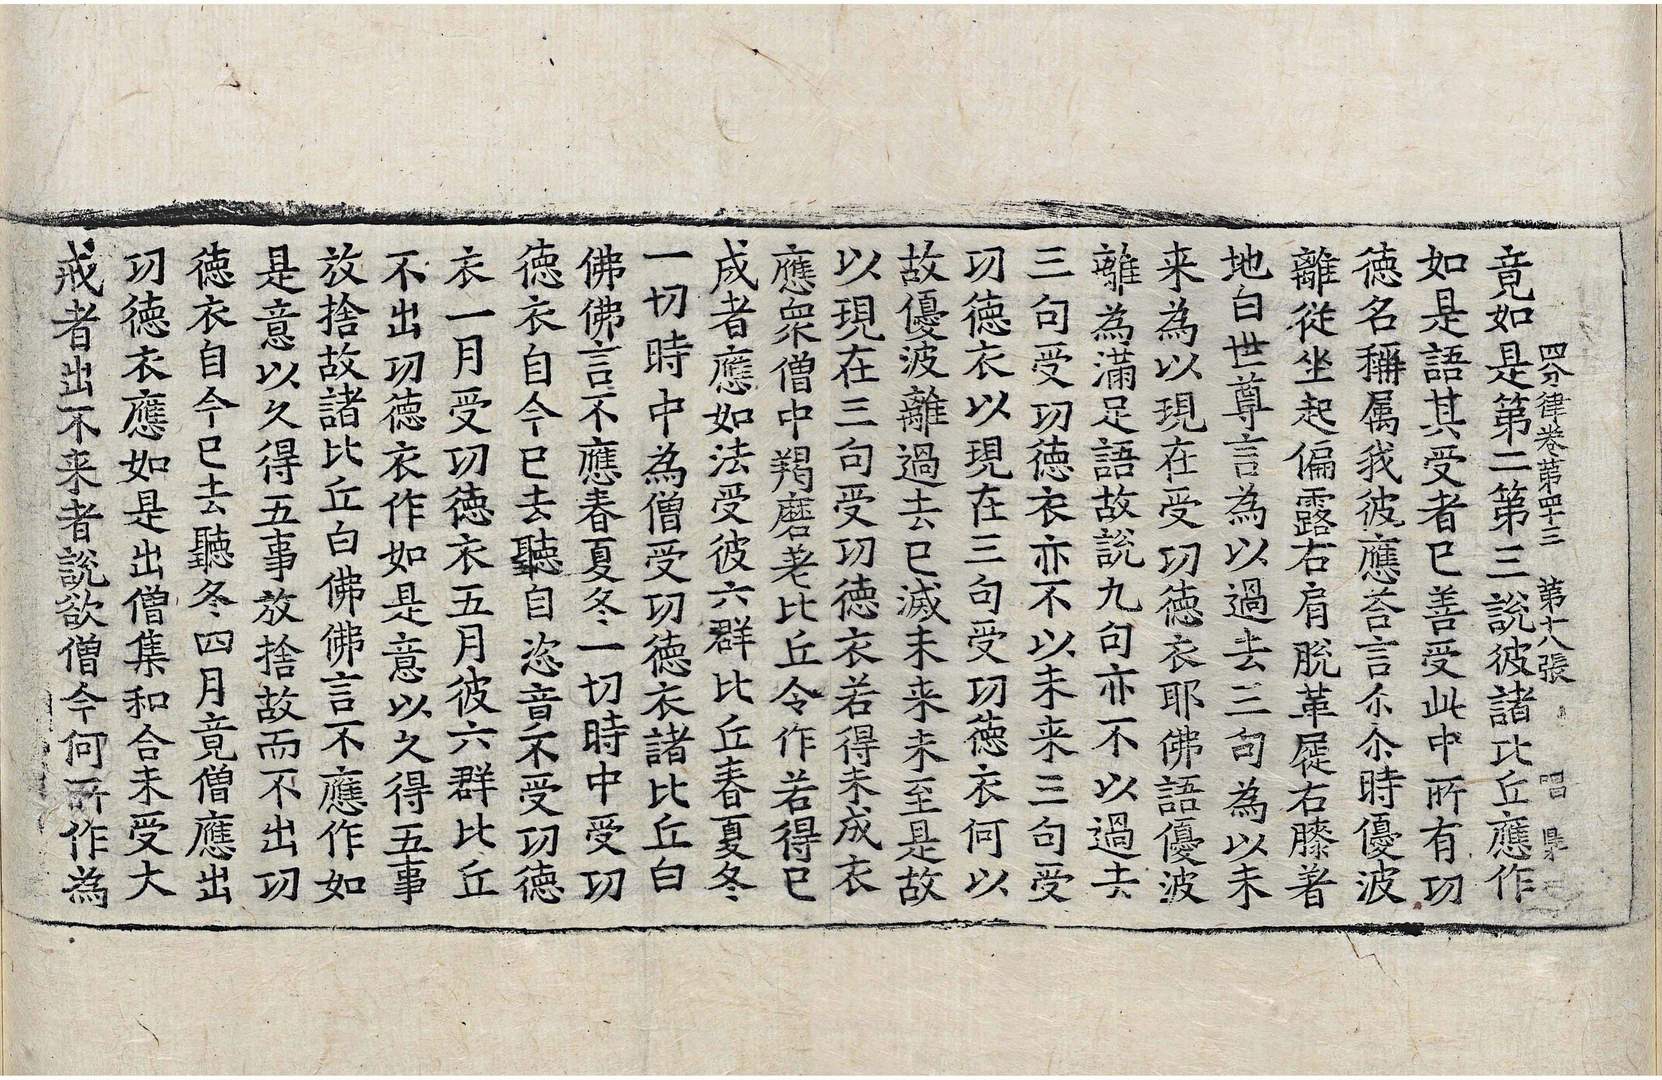 四分律卷第四十三 第十八張 唱
竟如是第二第三說彼諸比丘應作
如是語其受者已善受此中所有功
德名稱属我彼應荅言尒尒時優波
離從坐起偏露右肩脫革屣右膝著
地白世尊言為以過去三句為以未
来為以現在受功德衣耶佛語優波
離為滿足語故說九句亦不以過去
三句受功德衣亦不以未来三句受
功德衣以現在三句受功德衣何以
故優波離過去已滅未来未至是故
以現在三句受功德衣若得未成衣
應衆僧中羯磨差比丘令作若得已
成者應如法受彼六群比丘春夏冬
一切時中為僧受功德衣諸比丘白
佛佛言不應春夏冬一切時中受功
德衣自今已去聽自恣竟不受功德
衣一月受功德衣五月彼六群比丘
不出功德衣作如是意以久得五事
放捨故諸比丘白佛佛言不應作如
是意以久得五事放捨故而不出功
德衣自今已去聽冬四月竟僧應出
功德衣應如是出僧集和合未受大
戒者出不来者說欲僧今何所作為